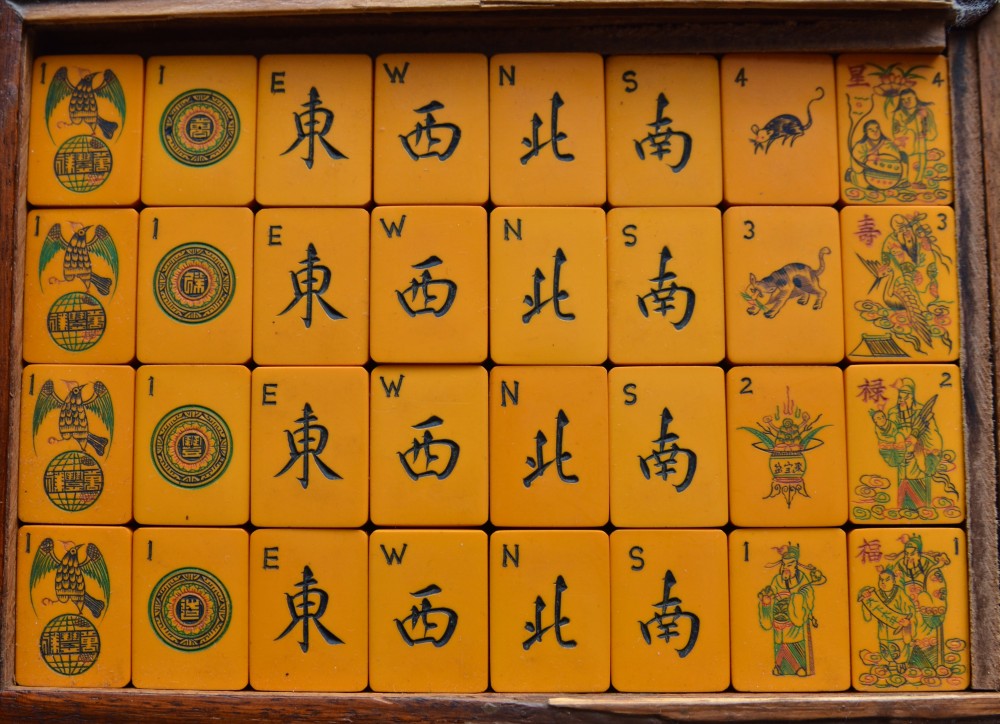 1 1 E 東 W 西 N 北 S 南 4 星 4
1 1 E 東 W 西 N 北 S 南 3 寿 3
1 1 E 東 W 西 N 北 S 南 2 禄 2
1 1 E 東 W 西 N 北 S 南 1 福 1